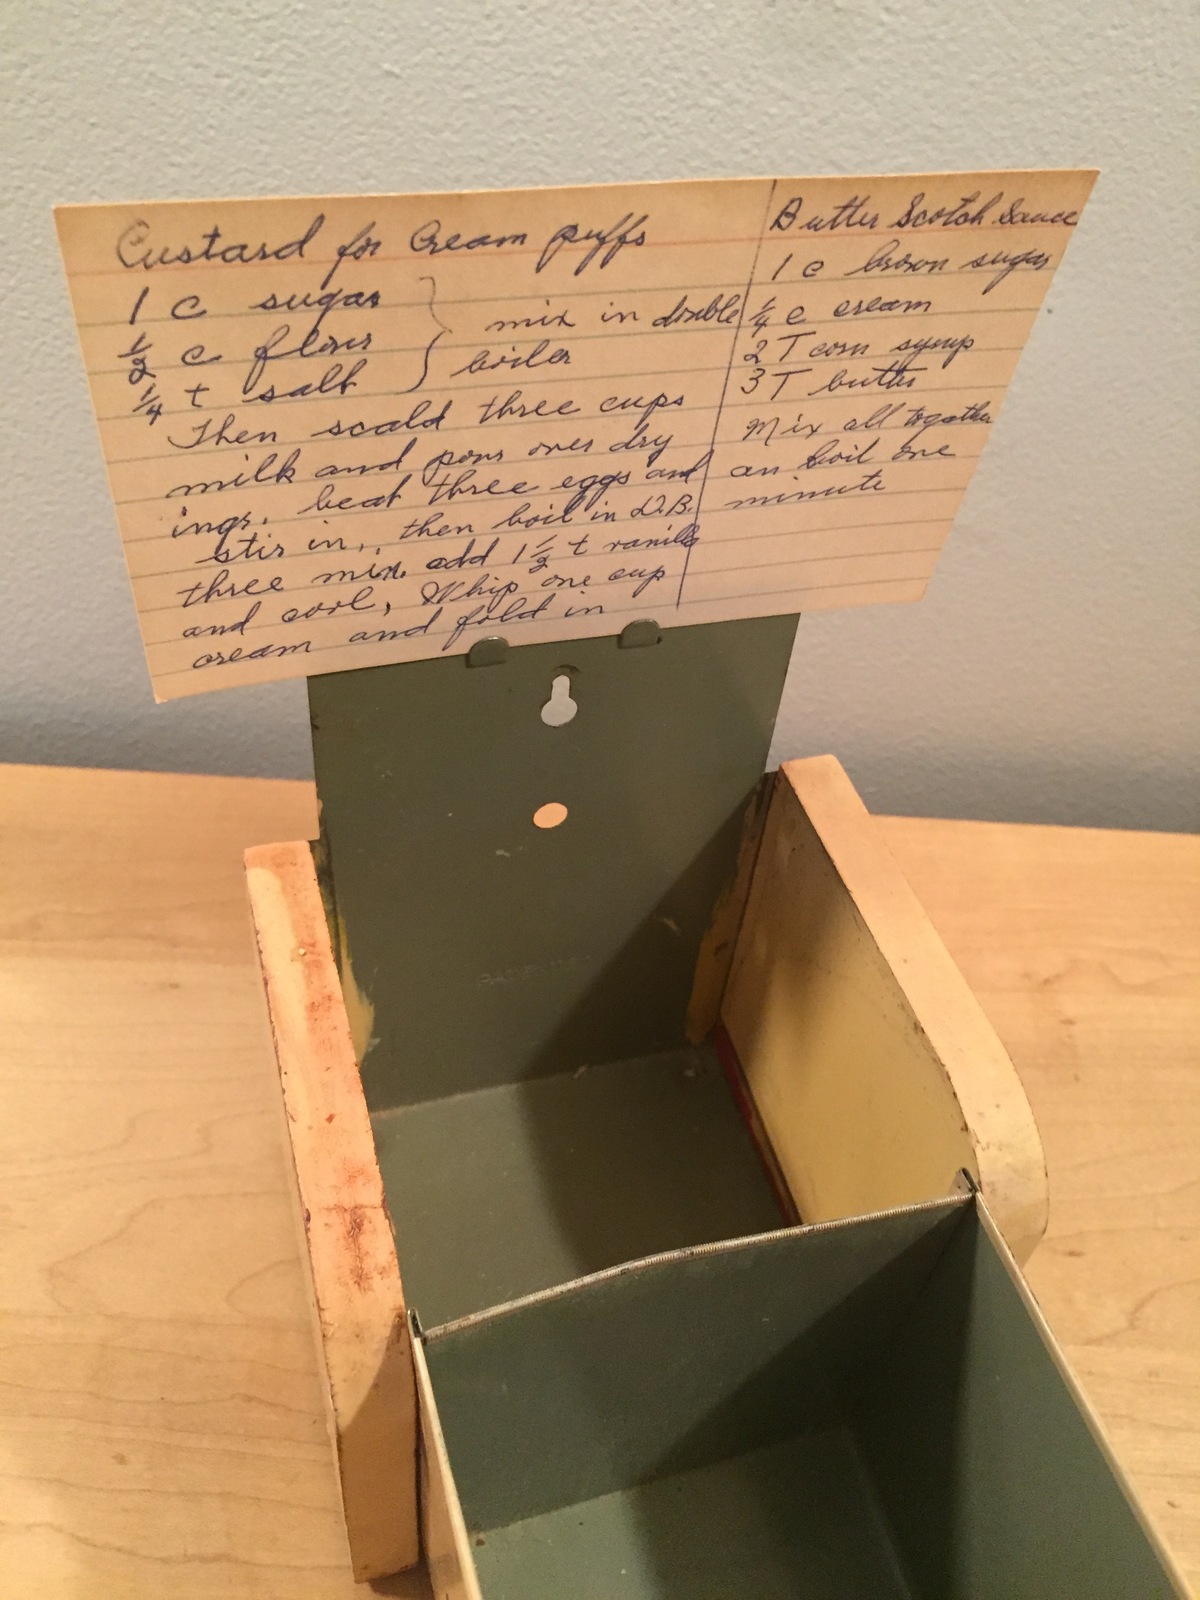 Custard for Cream puffs
1 c sugar
1/2 c flour
1/4 t salt
mix in double
boiler
Then scald three cups
milk and pour over dry
ings. beat three eggs and
stir in, then boil in D.B.
three min. add 1 1/2 t vanilla
and cool, Whip one cup
cream and fold in
Butter Scotch Sauce
1 c brown sugar
1/4 c cream
2 T corn syrup
3 T butter
Mix all together
an boil one
minute